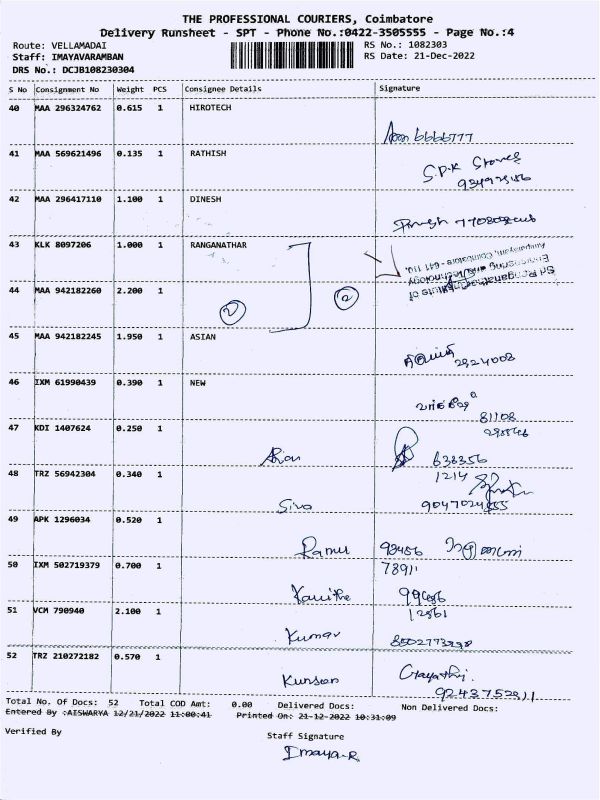 THE PROFESSIONAL COURIERS, Coimbatore
Delivery Runsheet - SPT - Phone No.:0422-3505555 - Page No.:4
Route: VELLAMADAI RS No.: 1082303
Staff: IMAYAVARAMBAN RS Date: 21-Dec-2022
DRS No.: DCJB108230304
S No Consignment No Weight PCS Consignee Details Signature
40 MAA 296324762 0.615 1 HIROTECH
6666777
41 MAA 569621496 0.135 1 RATHISH
S.P.K Stores
42 MAA 296417110 1.100 1 DINESH
43 KLK 8097206 1.000 1 RANGANATHAR
Sri Ranganathar Institute of
Engineering and Technology
Athipalayam, Coimbatore - 641 110.
44 MAA 942182260 2.200 1
2 2
45 MAA 942182245 1.950 1 ASIAN
2924008
46 IXM 61990439 0.390 1 NEW
81108
47 KDI 1407624 0.250 1
638356
48 TRZ 56942304 0.340 1
1214
Siva
49 APK 1296034 0.520 1
Ramu
50 IXM 502719379 0.700 1
78911
Kavitha
51 VCM 790940 2.100 1
Kumar
52 TRZ 210272182 0.570 1
Gayathri
Total No. Of Docs: 52 Total COD Amt: 0.00 Delivered Docs: Non Delivered Docs:
Entered By :AISWARYA 12/21/2022 11:00:41 Printed On: 21-12-2022 10:31:09
Verified By Staff Signature
Imaya.R